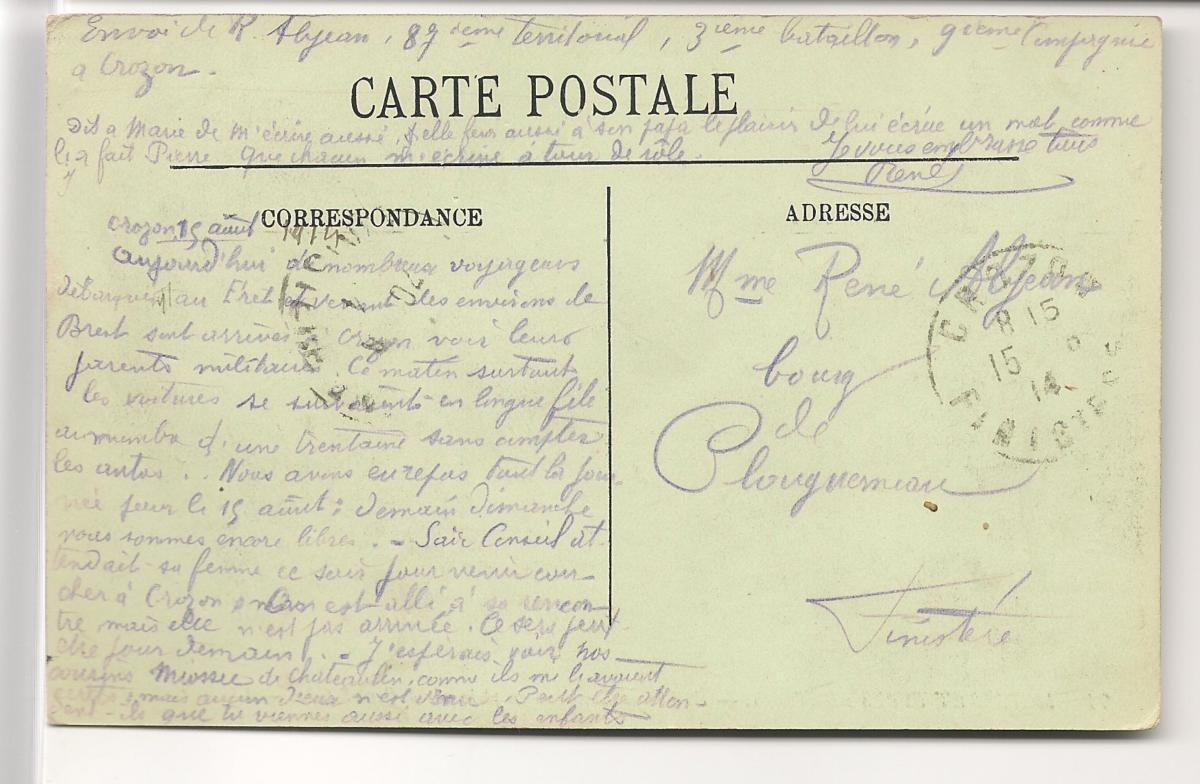 Envoi de R. Abjean, 87ième territorial, 3ième bataillon, 9ième Compagnie
a Crozon.
CARTE POSTALE
Dis a Marie de m'écrire aussi, elle fera aussi à son papa le plaisir de lui écrire un mot comme
l'a fait Pierre que chacun m'écrive à tour de rôle. Je vous embrasse tous
René
CORRESPONDANCE
Crozon, 15 août 1914
Aujourd'hui de nombreux voyageurs
débarqués au Fret et venant des environs de
Brest sont arrivés à Crozon voir leurs
parents militaires. Ce matin surtout
les voitures se suivaient en longue file
au nombre d'une trentaine sans compter
les autos.. Nous avons eu repos toute la jour-
née pour le 15 août : demain dimanche
nous sommes encore libres. - Conseil at-
tendait sa femme ce soir pour venir cou-
cher à Crozon on est allé à sa rencon-
tre mais elle n'est pas arrivée. Ce sera peut
être pour demain. - J'espérais voir nos
cousins Miossec de Chateaulin, comme ils me l'avaient
mais aucun d'eux n'est venu. Peut être atten-
dent-ils que tu viennes aussi avec les enfants
ADRESSE
Mme René Abjean
bourg
de
Plouguerneau
Finistère
CROZON
15
14
FINISTERE